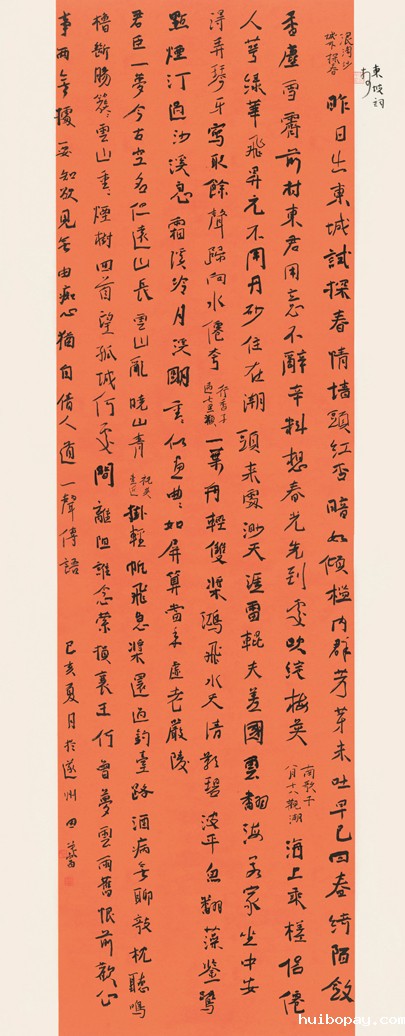 東坡詞
抄
浪淘沙
城外探春
昨日出東城試探春情墙頭紅杏暗如傾檻內群芳芽未吐早已回春綺陌斂
香塵雪霽前村東君用意不辭辛料想春光先到處吹綻梅英 南歌子 八月十八觀潮 海上乘槎侶僊
人萼綠華飛昇元不用丹砂住在潮頭來處渺天涯雷輥夫差國雲翻海若家坐中安
得弄琴牙寫取餘聲歸向水僊夸 行香子 過七里瀨 一葉舟輕雙槳鴻飛水天清影碧波平魚翻藻鑒鷺
點煙汀過沙溪急霜溪冷月溪明重重似畫曲曲如屏算當年虛老嚴陵
君臣一夢今古空名但遠山長雲山亂曉山青 祝英臺近 掛輕帆飛急槳還過釣臺路酒病無聊欹枕聽鳴
櫓斷腸簇簇雲山重重煙樹回首望孤城何處間離阻誰念縈損襄王何曾夢雲雨舊恨前歡心
事兩無據要知欲見無由癡心猶自倩人道一聲傳語 己亥夏月於遂州 田
huibopay.com